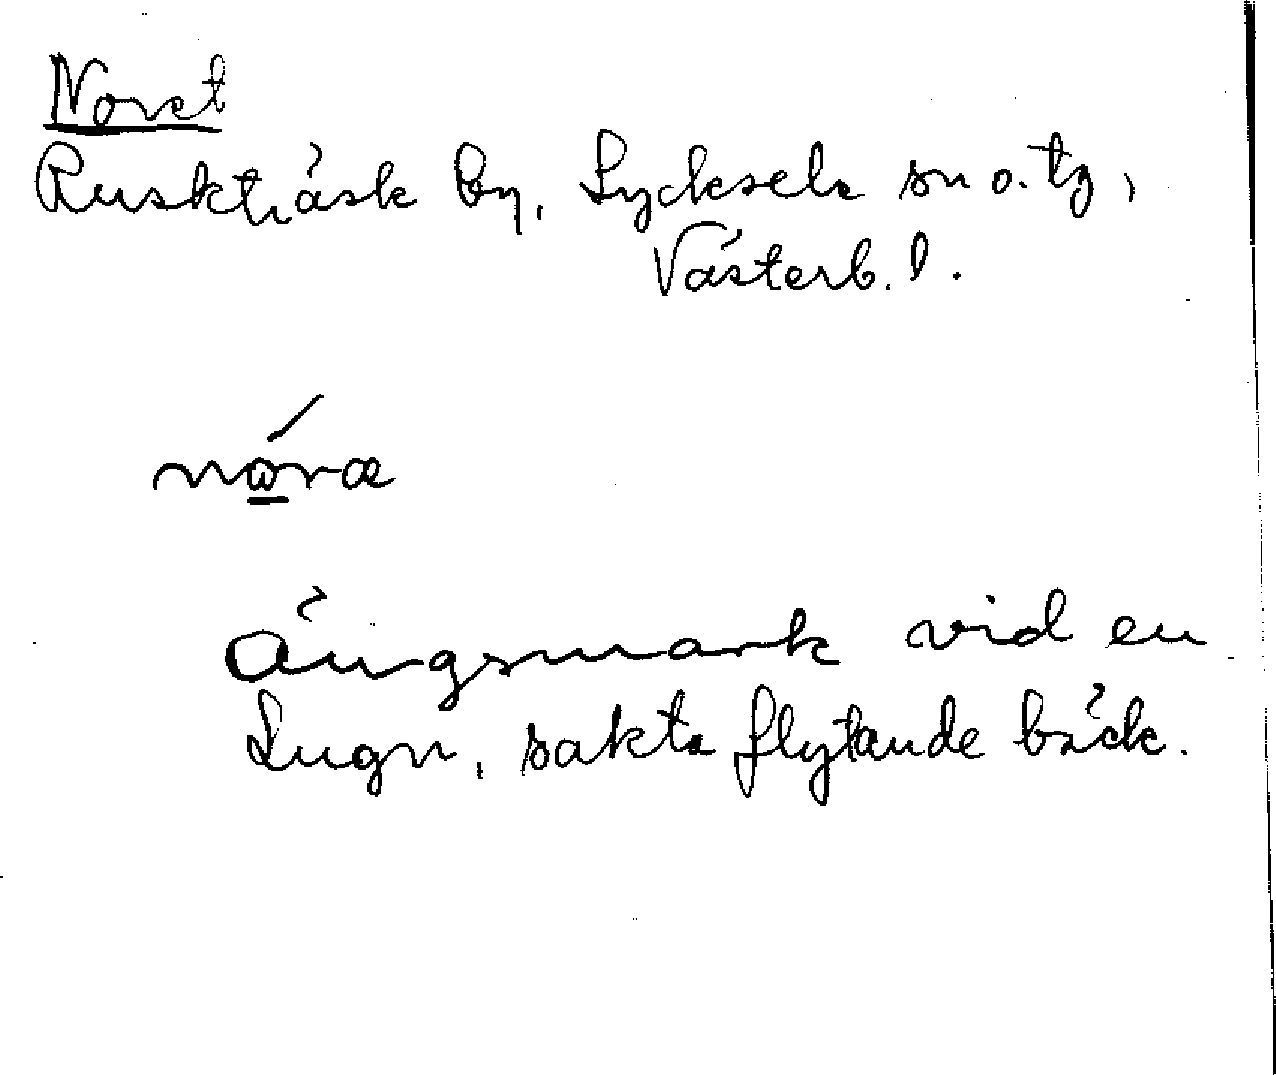 Noret
Ruskträsk by, Lycksele sn o. tg,
Västerb. l.
nǿ̱ræ
Ängsmark vid en
lugn, sakta flytande bäck.